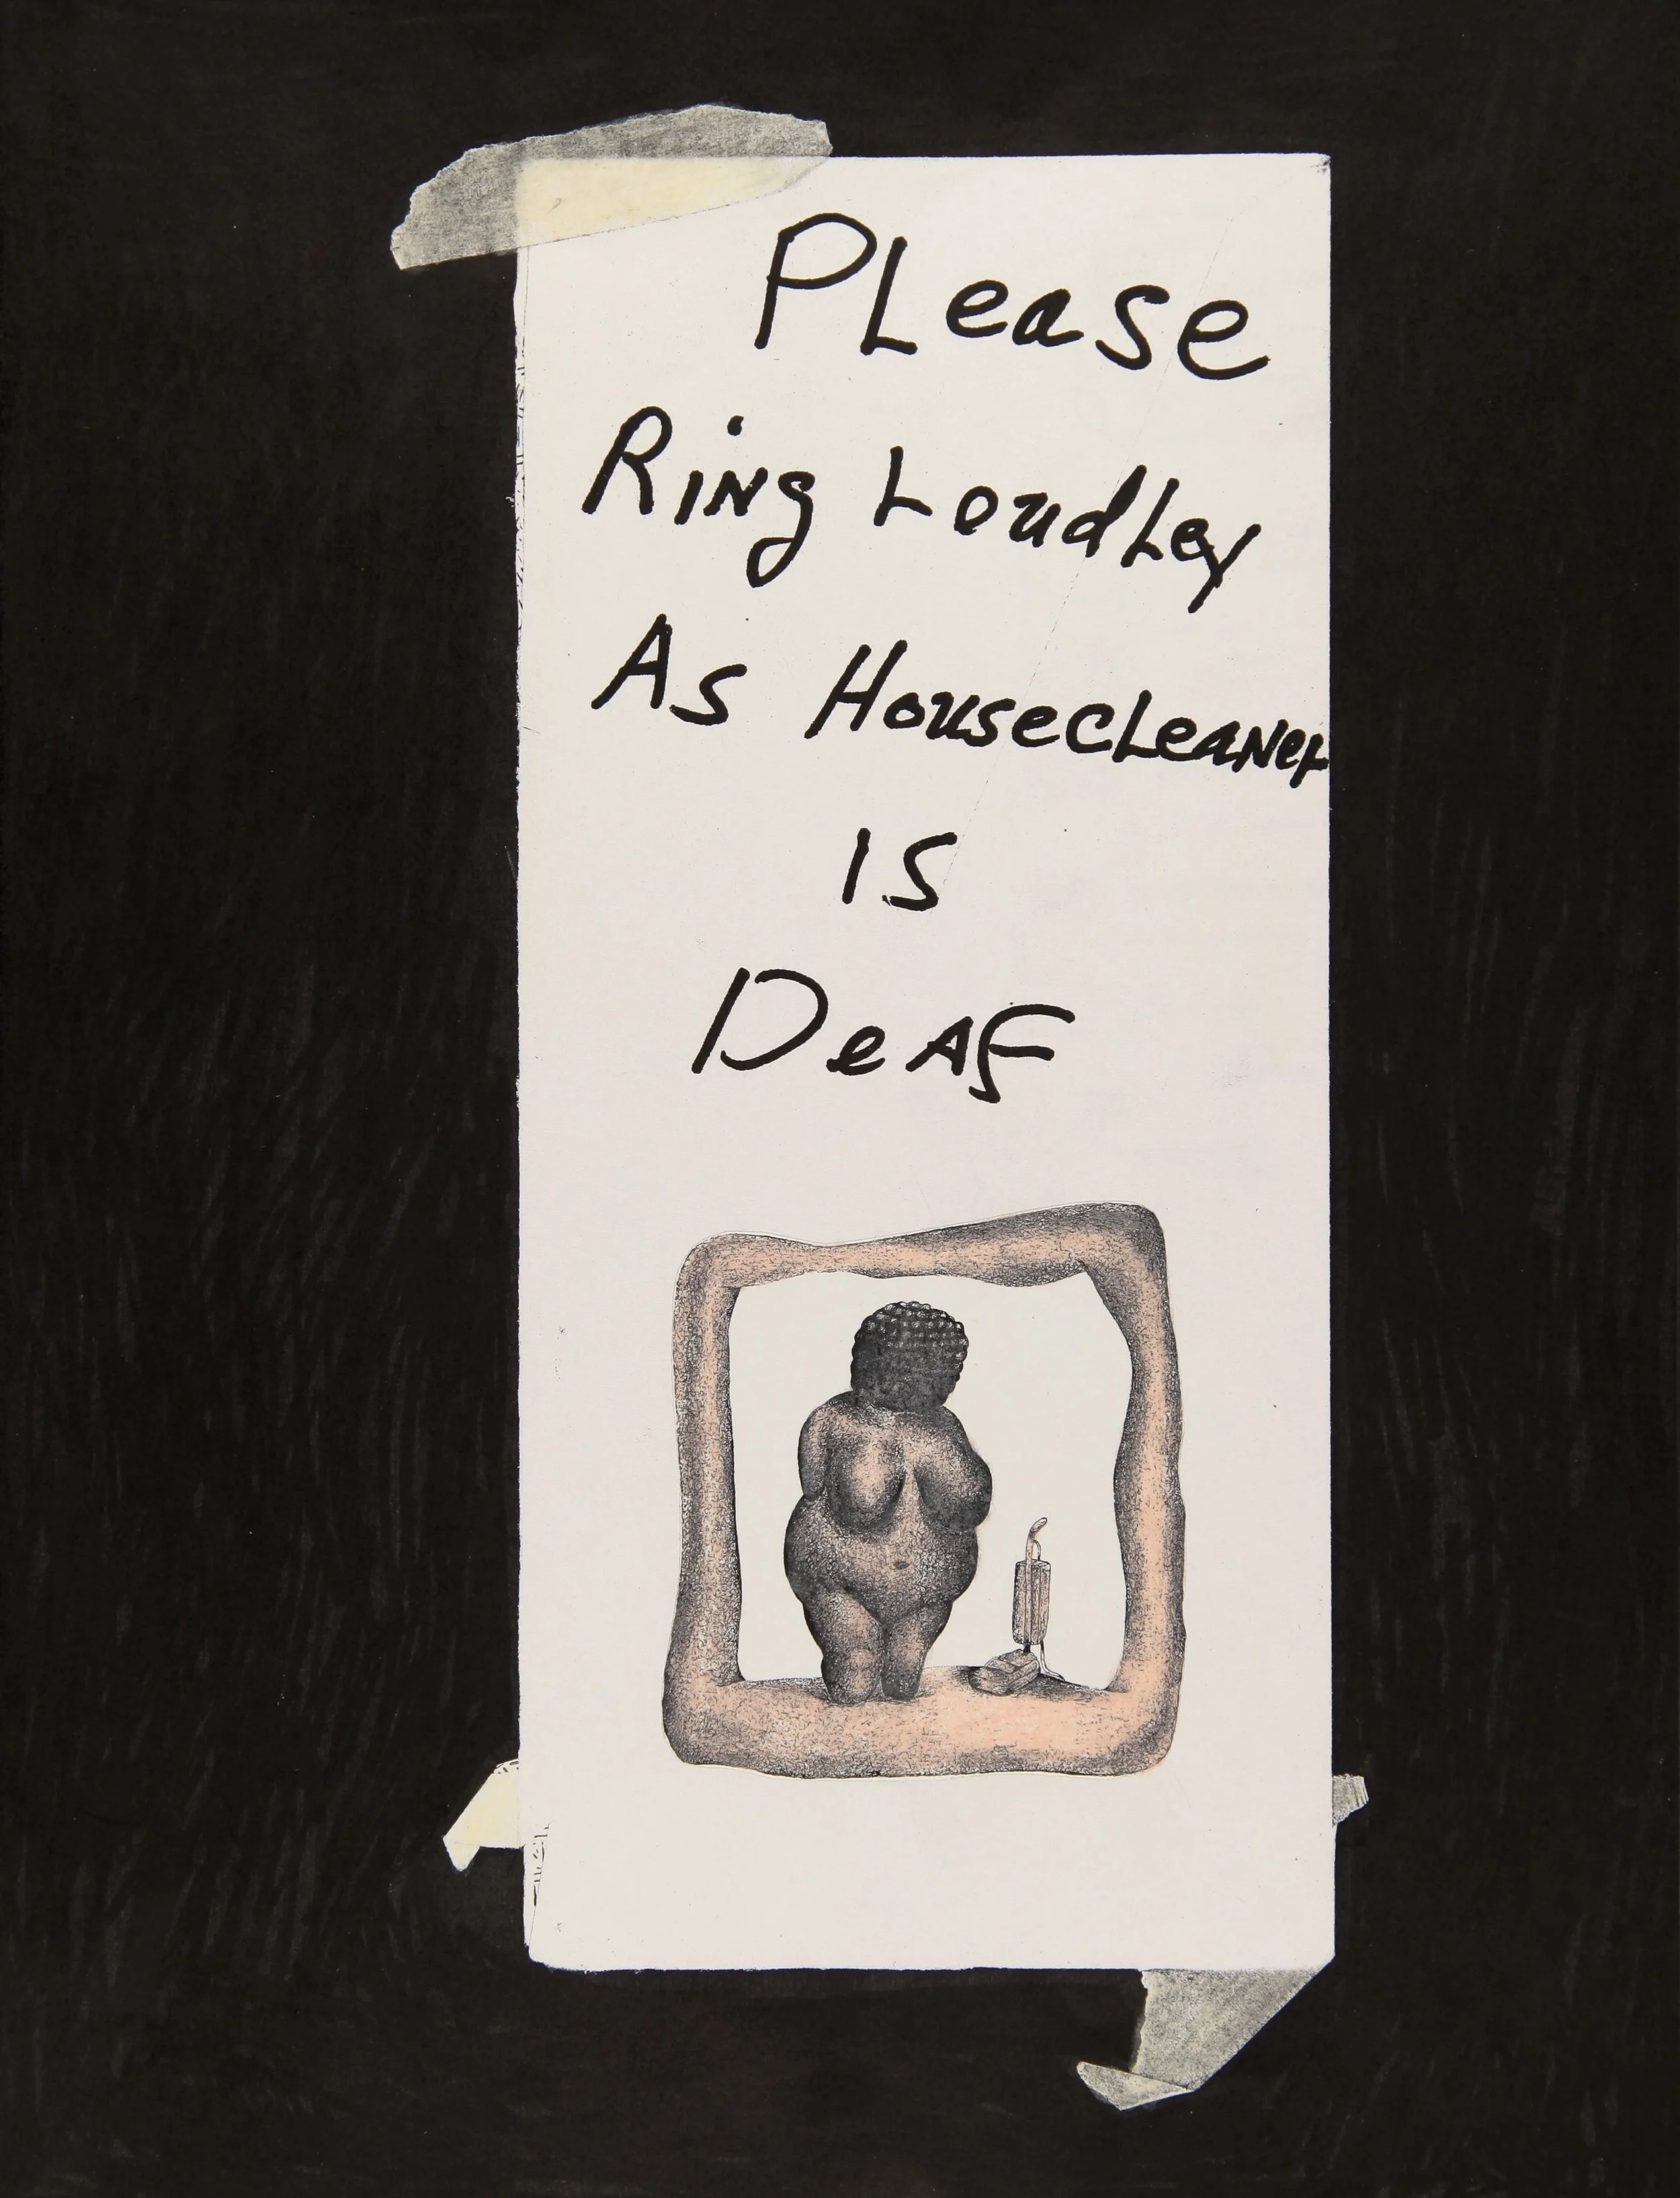 PLease
Ring LoudLey
As HousecLeaner
is
Deaf